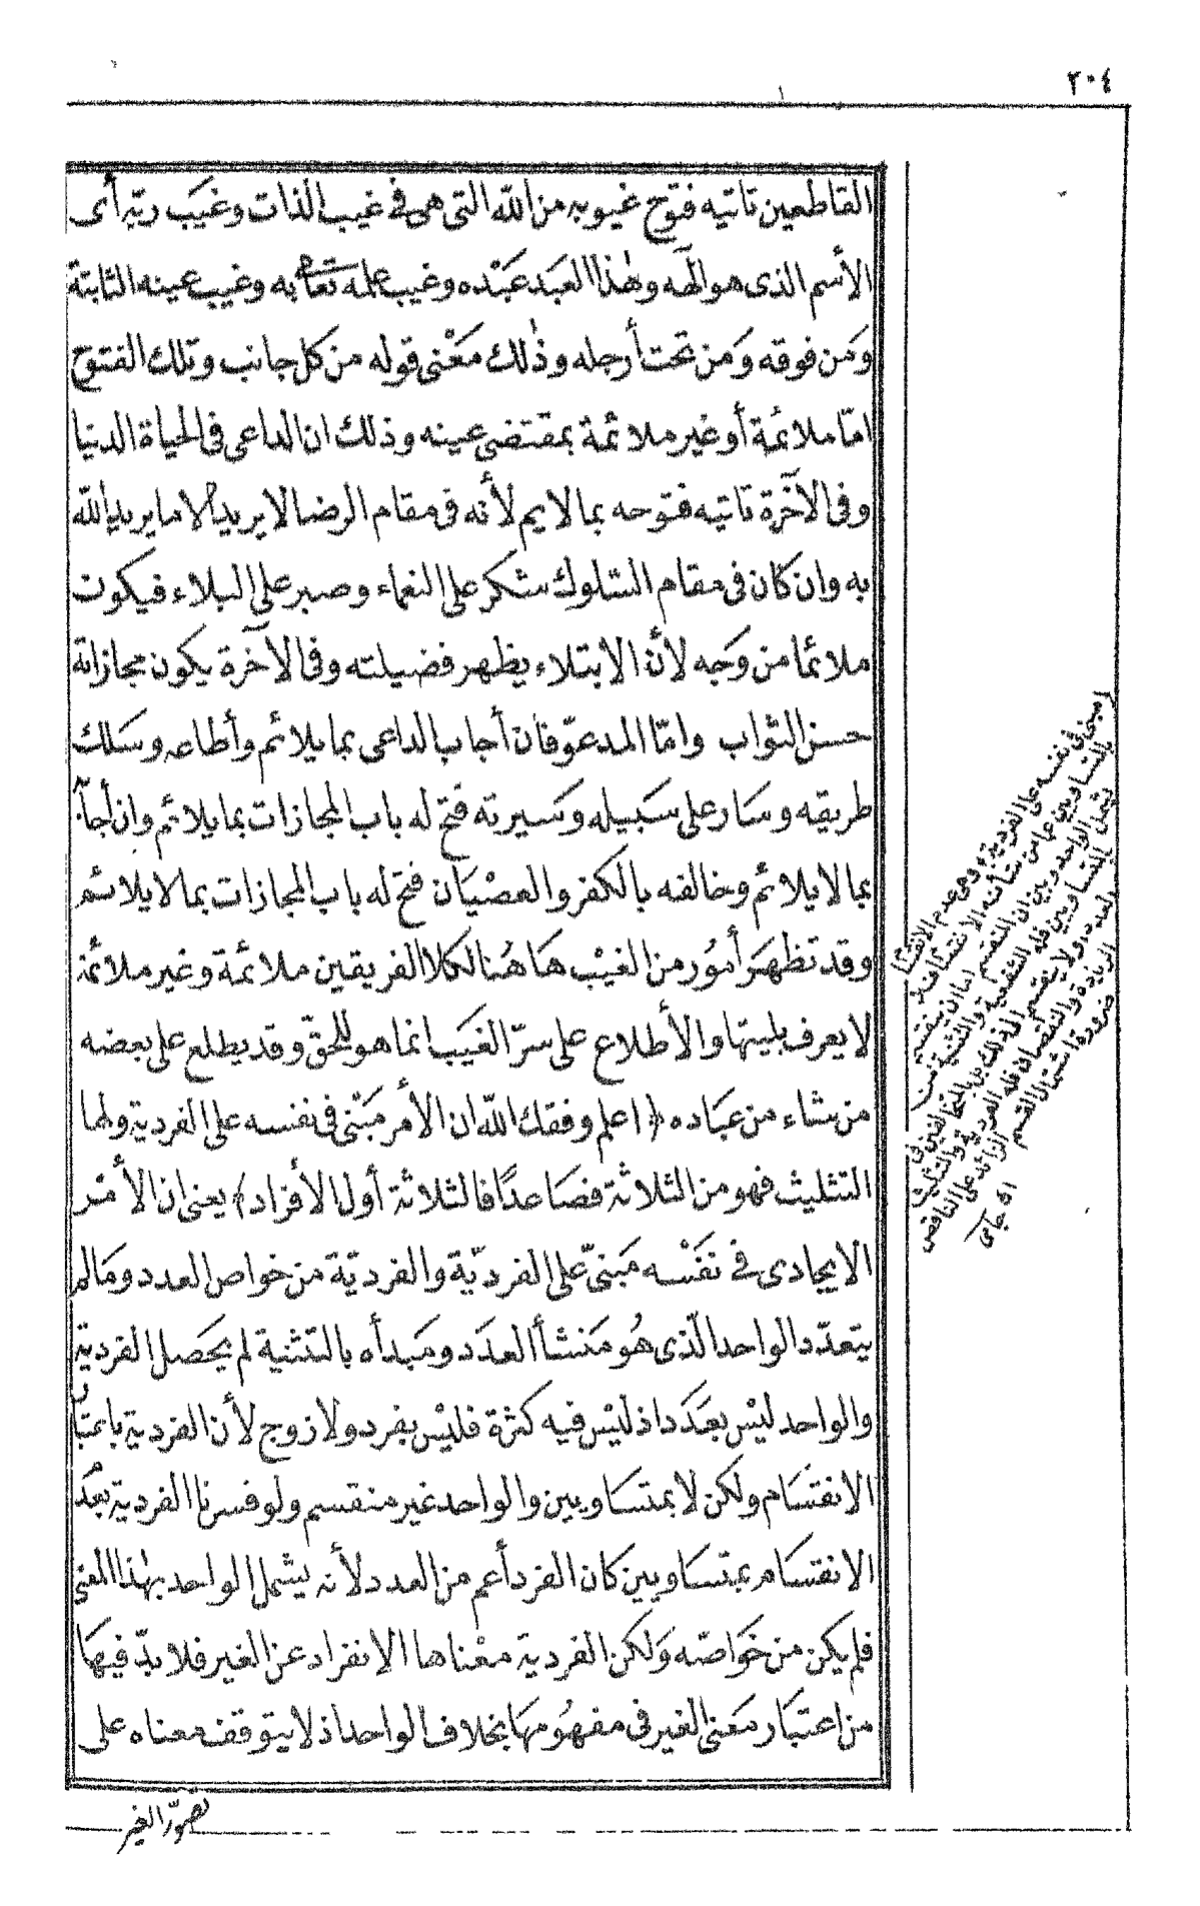 ٢٠٤
القاطعين تاتيه فتوح غيوبه من الله التى هى فى غيب الذات وغيب ربه أى
الأسم الذى هو الٰهه وهٰذا العبد عبده وغيب علمه تعالى به وغيب عينه الثابتة
ومن فوقه ومن تحت أرجله وذٰلك معنى قوله من كل جانب وتلك الفتوح
امّا ملائمة أو غير ملائمة بمقتضى عينه وذلك ان الداعى فى الحياة الدنيا
وفى الآخرة تاتيه فتوحه بما لايم لأنه فى مقام الرضا لا يريد الا ما يريد الله
به وان كان فى مقام السّلوك شكر على النعماء وصبر على البلاء فيكون
ملائما من وجه لأن الابتلاء يظهر فضيلته وفى الآخرة يكون مجازاته
حسن الثواب وامّا المدعوّ فان أجاب الداعى بما يلائم وأطاعه وسلك
طريقه وسار على سبيله وسيرته فتح له باب المجازات بما يلائم وان أجابه
بما لا يلائم وخالفه بالكفر والعصيان فتح له باب المجازات بما لا يلائم
وقد تظهر أمور من الغيب هاهنا لكلا الفريقين ملائمة وغير ملائمة
لا يعرف بليتها والأطلاع على سرّ الغيب انما هو للحقّ وقد يطلع على بعضه
من شاء من عباده (اعلم وفقك الله ان الأمر مبنى فى نفسه على الفردية ولها
التثليث فهو من الثلاثة فصاعدًا فالثلاثة أول الأفراد) يعنى ان الأمر
الايجادى فى نفسه مبنىّ على الفرديّة والفرديّة من خواص العدد وما لم
يتعدّد الواحد الّذى هو منشأ العدد ومبدأه بالتثنية لم يحصل الفردية
والواحد ليس بعدد اذ ليس فيه كثرة فليس بفرد ولا زوج لأن الفردية باعتبار
الانقسام ولكن لا بمتساويين والواحد غير منقسم ولو فسرنا الفردية بعدم
الانقسام بمتساويين كان الفرد أعم من العدد لأنه يشمل الواحد بهٰذا المعنى
فلم يكن من خواصّه ولكن الفردية معناها الانفراد عن الغير فلا بدّ فيها
من اعتبار معنى الغير فى مفهومها بخلاف الواحد اذ لا يتوقف معناه على
تصوّر الغير
مبنى فى نفسه على الفردية وهى عدم الانقسام
بالمتساويين عما من شأنه الانقسام
يشمل الواحد وبين ان المنقسم اما ان ينقسم
بالمتساويين فله الشفعية والتثنية من
العدد ولا ينقسم الى ذلك بل المتخالفين فى
الزيادة والنقصان فله الفردية والتثليث
ضرورة اشتمال القسم الزائد على الناقص
اه جامى